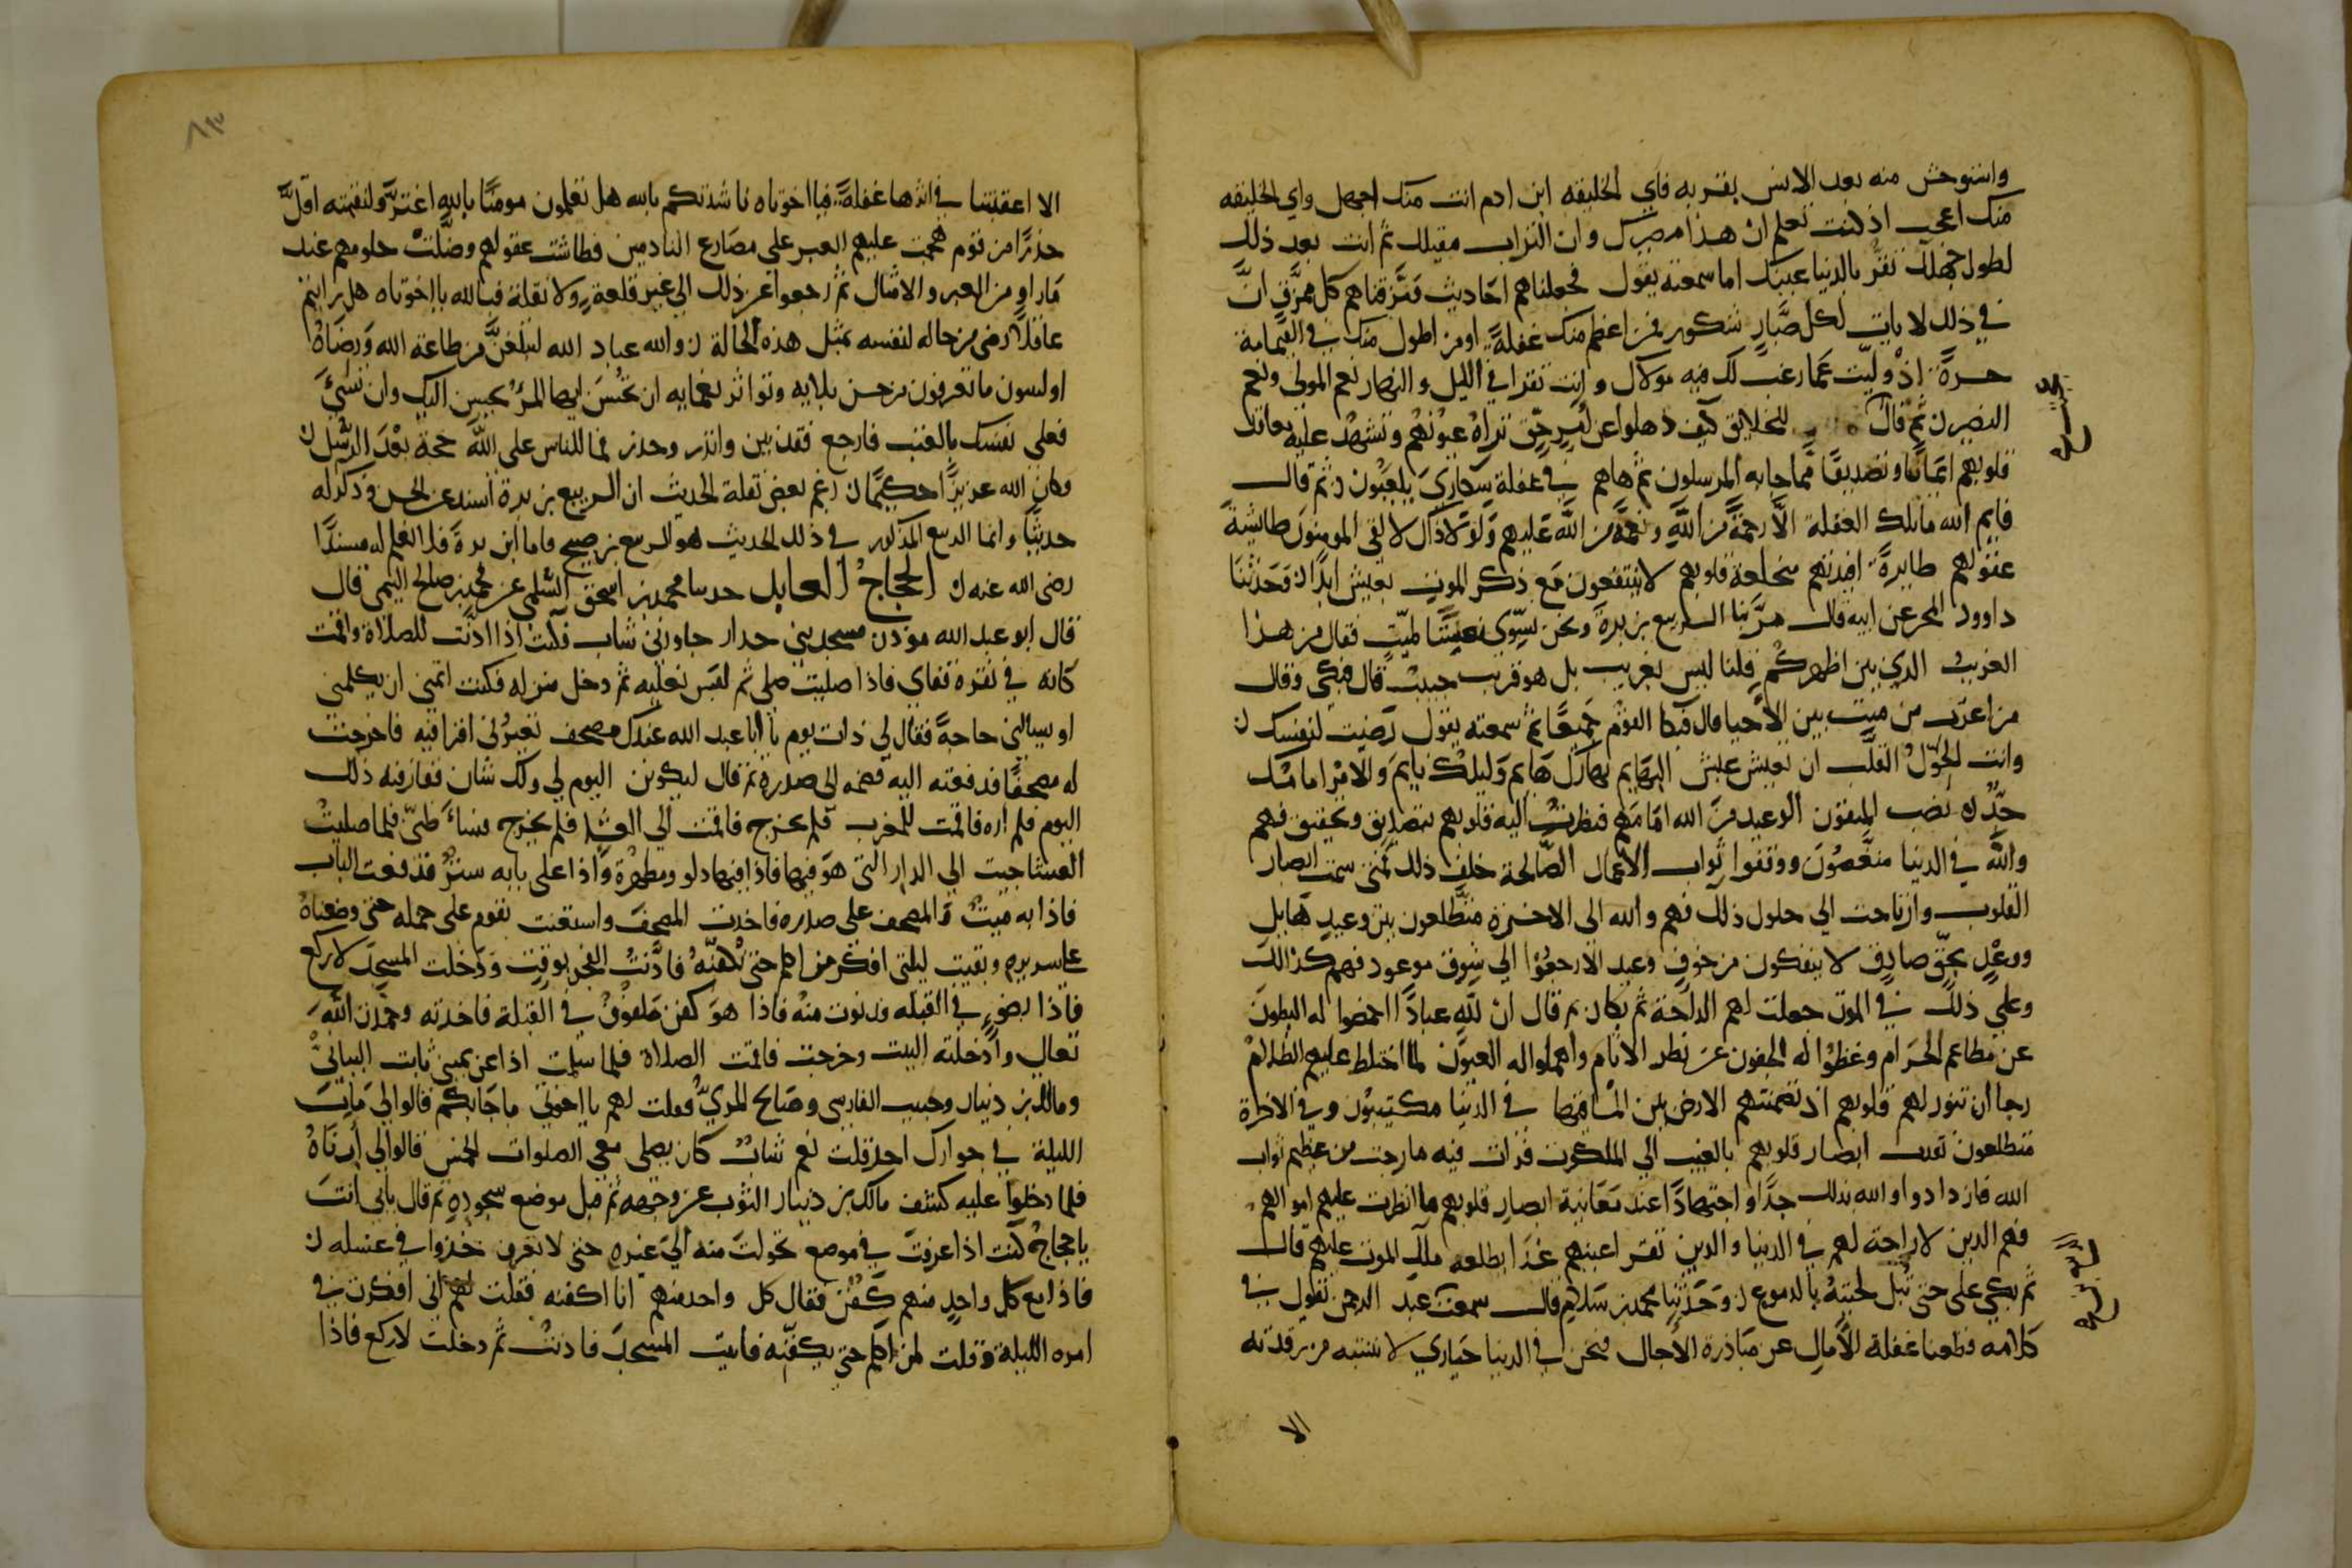 واستوحش منه بعد الانس بقربه فاي الخليقه ابن ادم انت منك اجهل واي الخليقه
منك اعجب اذ كنت تعلم ان هذا مصرك وان التراب مقيلك ثم انت بعد ذلك
لطول جهلك تقر بالدنيا عينك اما سمعته يقول فجعلناهم احاديث ومزقناهم كل ممزق ان
في ذلك لايات لكل صبار شكور فمن اعظم منك غفلة او من اطول منك في القيامة
حسرة اذ وليت عما رغب لك فيه مولاك وانت تقرا في الليل والنهار نعم المولى ونعم
النصير ثم قال للخلايق كيف ذهلوا عن امر حق تراه عيونهم وتشهد عليه معاقد
قلوبهم ايمانا وتصديقا بما جابه المرسلون ثم هاهم في غفلة سكارى يلعبون ثم قال
وايم الله ما تلك الغفلة الا رحمة من الله ونعمة من الله عليهم ولولا ذاك لالفى المومنون طايشة
عقولهم طايرة افيدتهم منخلعة قلوبهم لا ينتفعون مع ذكر الموت بعيش ابدا وحدثنا
داوود المحبر عن ابيه قال مر بنا الربيع بن برة ونحن نسوي نعشا لميت فقال من هذا
الغريب الذي بين اظهركم قلنا ليس بغريب بل هو قريب حبيب قال فبكى وقال
من اغرب من ميت بين الاحيا قال فبكا القوم جميعا ثم سمعته يقول رضيت لنفسك
وانت الحول القلب ان تعيش عيش البهايم نهارك هايم وليلك نايم والامر امامك
جد نصب المتقون الوعيد من الله امامهم فنظرت اليه قلوبهم بتصديق وتحقيق فهم
والله في الدنيا منغصون ووقفوا ثواب الاعمال الصالحة خلف ذلك فمتى سمت ابصار
القلوب وارتاحت الى حلول ذلك فهم والله الى الاخرة متطلعون بين وعيد هايل
ووعد بحق صادق لا ينفكون من خوف وعيد الا رجعوا الى شوق موعود فهم كذلك
وعلى ذلك في الموت جعلت لهم الراحة ثم بكا ثم قال ان لله عبادا اخمصوا له البطون
عن مطاعم الحرام وغضوا له الجفون عن نظر الاثام واهملوا له العيون لما اختلط عليهم الظلام
رجا ان تنور لهم قلوبهم اذ تضمنتهم الارض بين اطباقها في الدنيا مكتيبون وفي الاخرة
متطلعون نفدت ابصار قلوبهم بالغيب الى الملكوت فرات فيه ما رجت من عظيم ثواب
الله فازدادوا والله بذلك جدا واجتهادا عند معاينة ابصار قلوبهم ما انطوت عليهم امالهم
فهم الذين لا راحة لهم في الدنيا والذين تقر اعينهم غدا بطلعه ملك الموت عليهم قال
ثم يبكي على حتى تبل لحيته بالدموع وحدثنا محمد بن سلام قال سمعت عبد الرحمن يقول في
كلامه قطعنا غفلة الامال عن مبادرة الاجال فنحن في الدنيا حيارى لا ننتبه من رقدته
الا
٨٣
الا اعقبتنا في اثرها غفلة فيا اخوتاه ناشدتكم بالله هل تعلمون مومنا بالله اغتر ولنقمته اقل
حذرا من قوم هجمت عليهم العبر على مصارع النادمين فطاشت عقولهم وضلت حلومهم عند
ما راو من العبر والامثال ثم رجعوا عن ذلك الى غير قلعة ولا نقلة فبالله يا اخوتاه هل رايتم
عاقلا رضى من حاله لنفسه بمثل هذه الحالة والله عباد الله لتبلغن من طاعة الله ورضاه
او لتسون ما تعرفون من حسن بلايه وتواتر نعمايه ان تحسن ايها المر يحسن اليك وان تسئ
فعلى نفسك بالعتب فارجع فقد بين وانذر وحذر فما للناس على الله حجة بعد الرسل
وكان الله عزيزا حكيما زعم بعض نقلة الحديث ان الربيع بن برة اسند عن الحسن وذكر له
حديثا وانما الربيع المذكور في ذلك الحديث هو الربيع بن صبيح واما ابن برة فلا اعلم له مسندا
رضى الله عنه الحجاج العابد حدثنا محمد بن اسحق السلمي عن محمد بن صالح التيمي قال
قال ابو عبد الله موذن مسجد بني حدار جاورني شاب فكنت اذا اذنت للصلاة واقمت
كانه في نقرة قفاي فاذا صليت صلى ثم لبس نعليه ثم دخل منزله فكنت اتمنى ان يكلمني
او يسالني حاجة فقال لي ذات يوم يا ابا عبد الله عندك مصحف تعيرني اقرا فيه فاخرجت
له مصحفا فدفعته اليه فضمه الى صدره ثم قال ليكونن اليوم لي ولك شان ففارقته ذلك
اليوم فلم اره فاقمت للمغرب فلم يخرج فاقمت الى العشا فلم يخرج فساء ظني فلما صليت
العشا جيت الى الدار التي هو فيها فاذا فيها دلو ومطهرة واذا على بابه ستر فدفعت الباب
فاذا به ميت والمصحف على صدره فاخذت المصحف واستعنت بقوم على حمله حتى وضعناه
على سريره وبقيت ليلتي افكر من اكلم حتى يكفنه فاذنت الفجر بوقت ودخلت المسجد لاركع
فاذا بضوء في القبله فدنوت منه فاذا هو كفن ملفوف في القبلة فاخذته وحمدت الله
تعالى وادخلته البيت وخرجت فاقمت الصلاة فلما سلمت اذا عن يميني ثابت البناني
ومالك بن دينار وحبيب الفارسي وصالح المري فقلت لهم يا اخوتي ما جا بكم قالوا لي مات
الليلة في جوارك احد قلت نعم شاب كان يصلي معي الصلوات الخمس قالوا لي ارناه
فلما دخلوا عليه كشف مالك بن دينار الثوب عن وجهه ثم قبل موضع سجوده ثم قال بابي انت
يا حجاج كنت اذا عرفت في موضع تحولت منه الى غيره حتى لا تعرف خذوا في غسله
فاذا مع كل واحد منهم كفن فقال كل واحد منهم انا اكفنه فقلت لهم اني افكرت في
امره الليلة وقلت لمن اكلم حتى يكفنه فاتيت المسجد فاذنت ثم دخلت لاركع فاذا